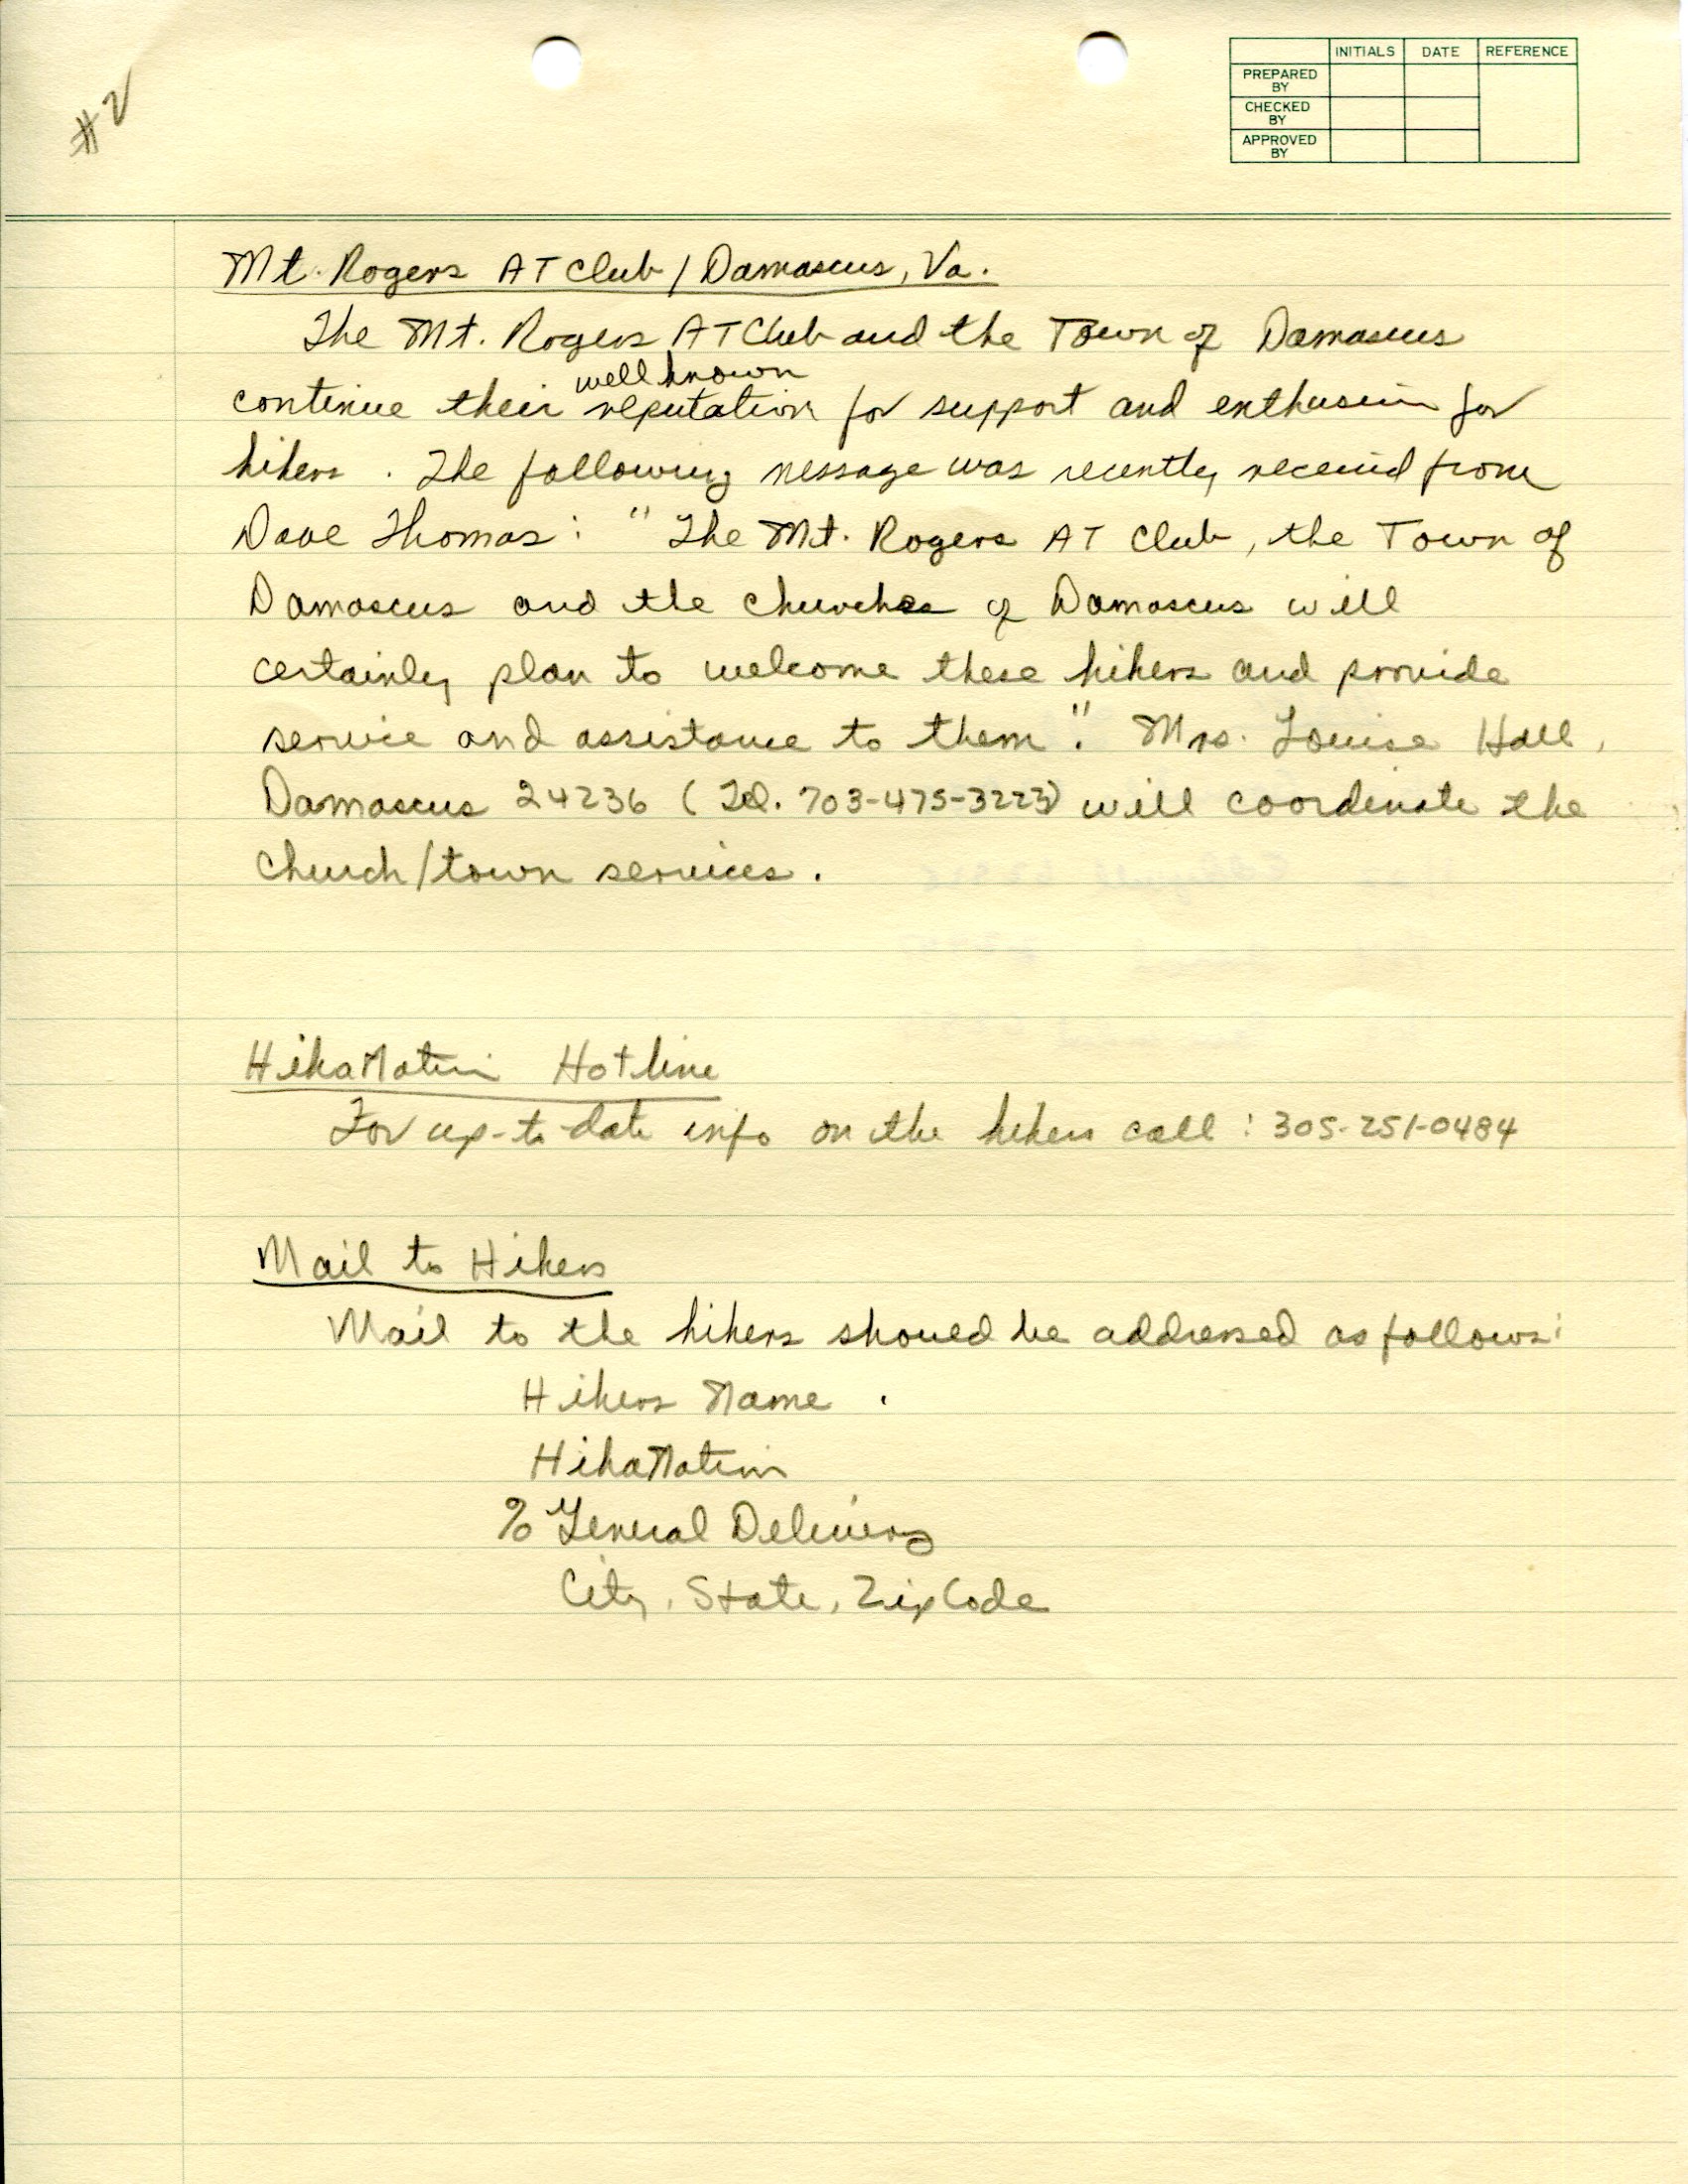 #2
INITIALS DATE REFERENCE
PREPARED BY
CHECKED BY
APPROVED BY
Mt. Rogers AT Club / Damascus, Va.
The Mt. Rogers AT Club and the Town of Damascus
well known
continue their reputation for support and enthusiasm for
hikers. The following message was recently received from
Dave Thomas: "The Mt. Rogers AT Club, the Town of
Damascus and the churches of Damascus will
certainly plan to welcome these hikers and provide
service and assistance to them". Mrs. Louise Hall,
Damascus 24236 (Tel. 703-475-3223) will coordinate the
church/town services.
HikaNation Hotline
For up-to-date info on the hikers call: 305-251-0484
Mail to Hikers
Mail to the hikers should be addressed as follows:
Hikers Name
HikaNation
% General Delivery
City, State, Zip Code